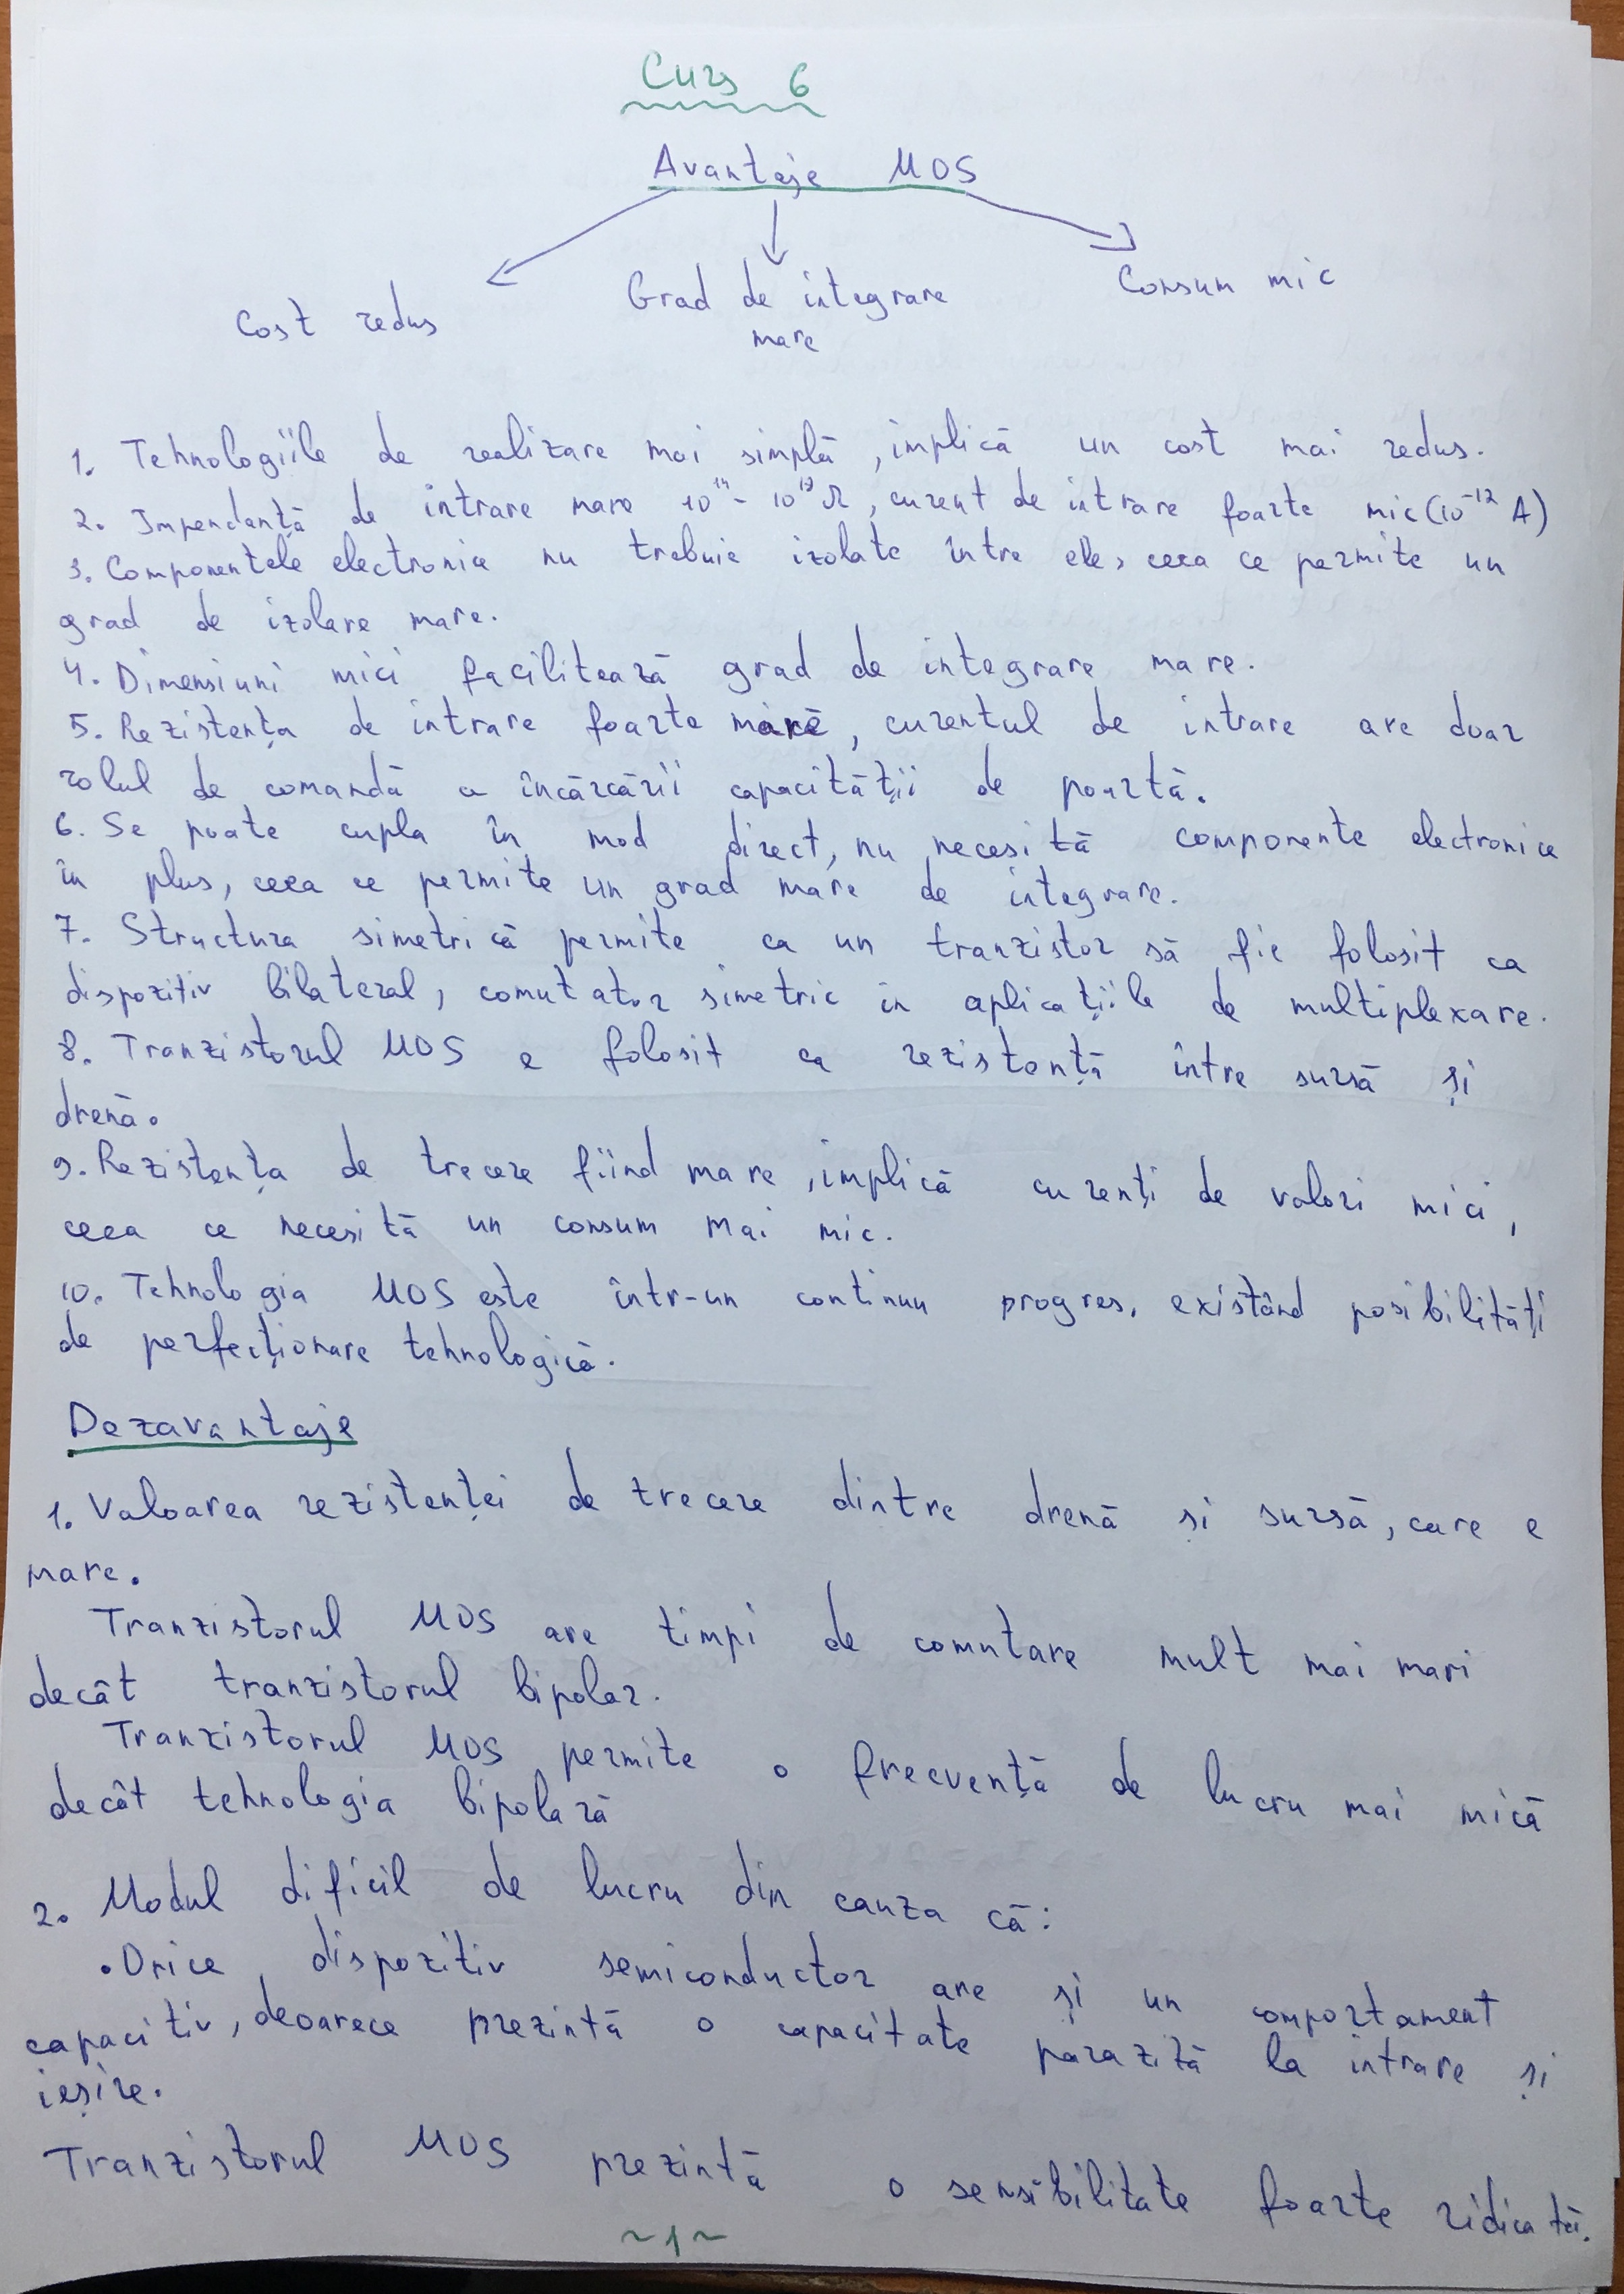 Curs 6
Avantaje MOS
Cost redus
Grad de integrare
mare
Consum mic
1. Tehnologiile de realizare mai simplă, implică un cost mai redus.
2. Impendanță de intrare mare 10¹⁴ - 10¹⁹ Ω, curent de intrare foarte mic (10⁻¹² A)
3. Componentele electronice nu trebuie izolate între ele, ceea ce permite un
grad de izolare mare.
4. Dimensiuni mici facilitează grad de integrare mare.
5. Rezistența de intrare foarte mare, curentul de intrare are doar
rolul de comandă a încărcării capacității de poartă.
6. Se poate cupla în mod direct, nu necesită componente electronice
în plus, ceea ce permite un grad mare de integrare.
7. Structura simetrică permite ca un tranzistor să fie folosit ca
dispozitiv bilateral, comutator simetric in aplicațiile de multiplexare.
8. Tranzistorul MOS e folosit ca rezistență între sursă și
drenă.
9. Rezistența de trecere fiind mare, implică curenți de valori mici,
ceea ce necesită un consum mai mic.
10. Tehnologia MOS este într-un continuu progres, existând posibilități
de perfecționare tehnologică.
Dezavantaje
1. Valoarea rezistenței de trecere dintre drenă si sursă, care e
mare.
Tranzistorul MOS are timpi de comutare mult mai mari
decât tranzistorul bipolar.
Tranzistorul MOS permite o frecvență de lucru mai mică
decât tehnologia bipolară
2. Modul dificil de lucru din cauza că:
• Orice dispozitiv semiconductor are și un comportament
capacitiv, deoarece prezintă o capacitate parazită la intrare și
ieșire.
Tranzistorul MOS prezintă o sensibilitate foarte ridicată.
~1~